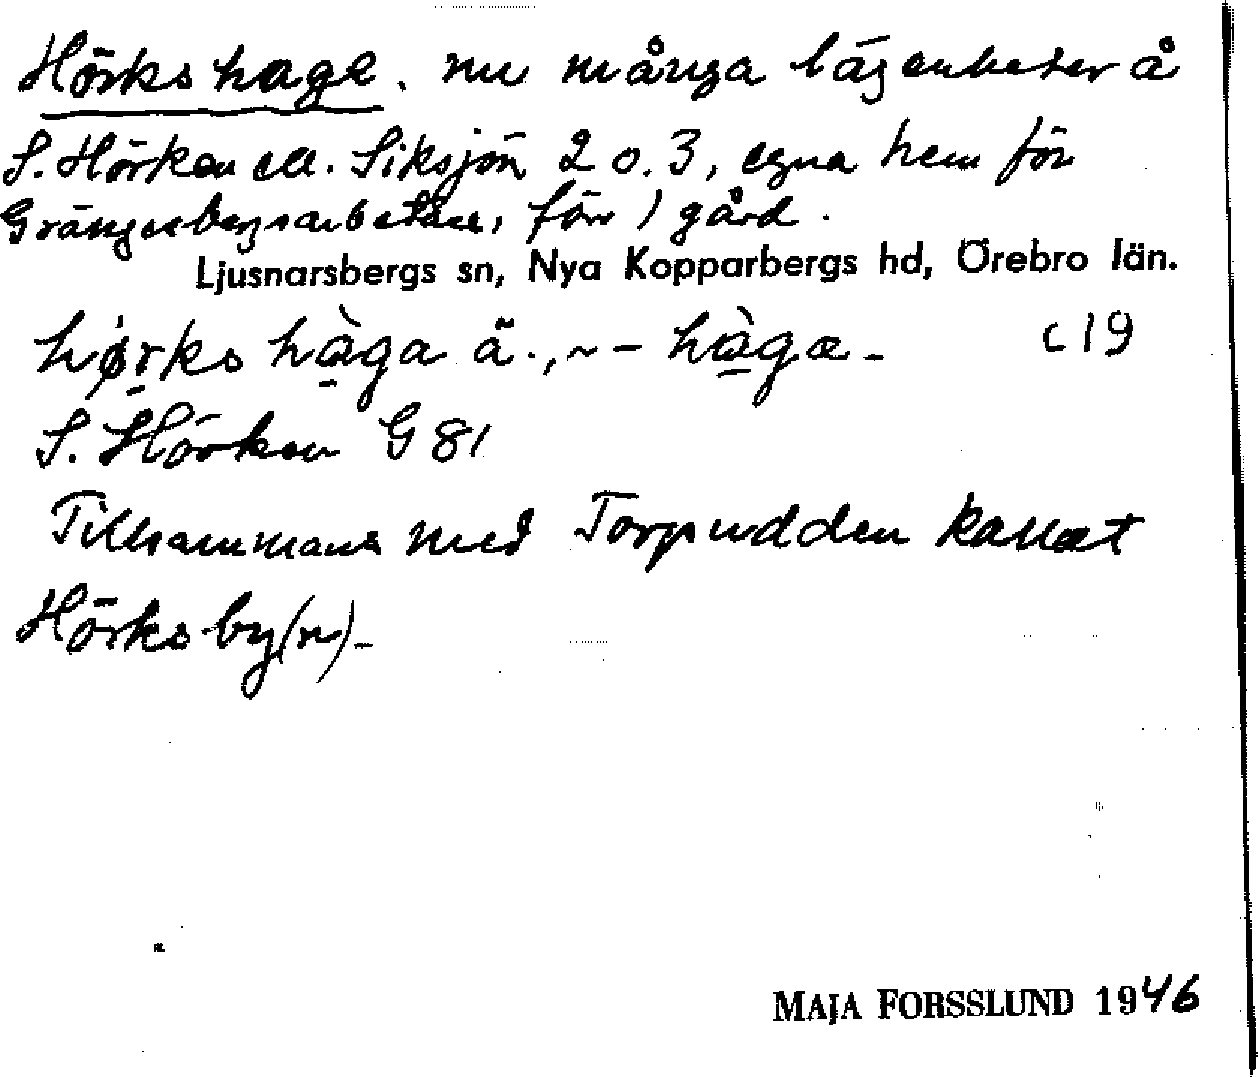 Hörks hage. nu många lägenheter å
S. Hörken ell. Siksjön 2 o. 3, egna hem för
Grängesbergsarbetare, förr 1 gård.
Ljusnarsbergs sn, Nya Kopparbergs hd, Örebro län.
hø̀rks hàga ä., ~ – hàgæ – c 19
S. Hörken G 81
Tillsammans med Torpudden kallat
Hörksby(n)–
MAJA FORSSLUND 1946